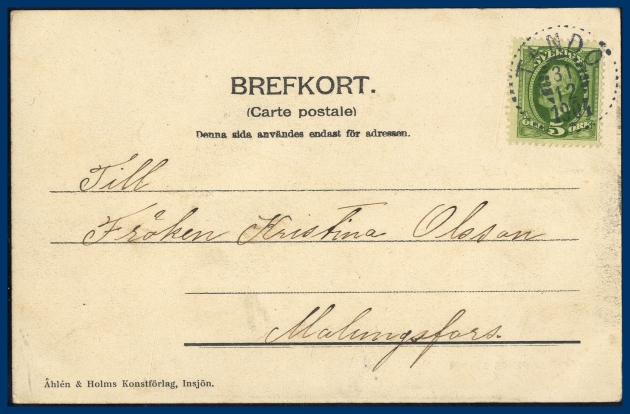 BREFKORT.
(Carte postale)
Denna sida användes endast för adressen.
SVERIGE
31
12
5 ÖRE
Till
Fröken Kristina Olsson
Malungsfors.
Åhlén & Holms Konstförlag, Insjön.